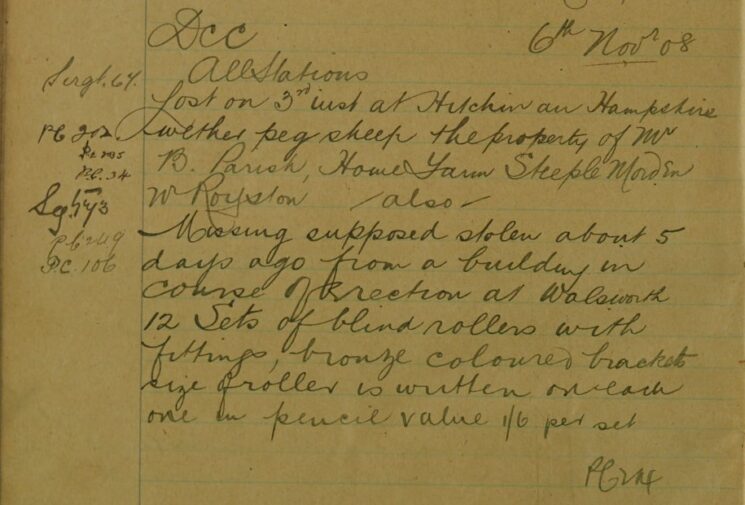 DCC
6th Novr 08
All Stations
Sergt. 64.
Lost on 3rd inst at Hitchin an Hampshire
PC 202.
wether peg sheep the property of Mr
B. Parish, Home Farm Steeple Morden
P.C. 34
Nr Royston - also -
Missing supposed stolen about 5
PC 249
days ago from a building in
P.C. 106
course of erection at Walsworth
12 Sets of blind rollers with
fittings, bronze coloured brackets
size of roller is written on each
one in pencil value 1/6 per set